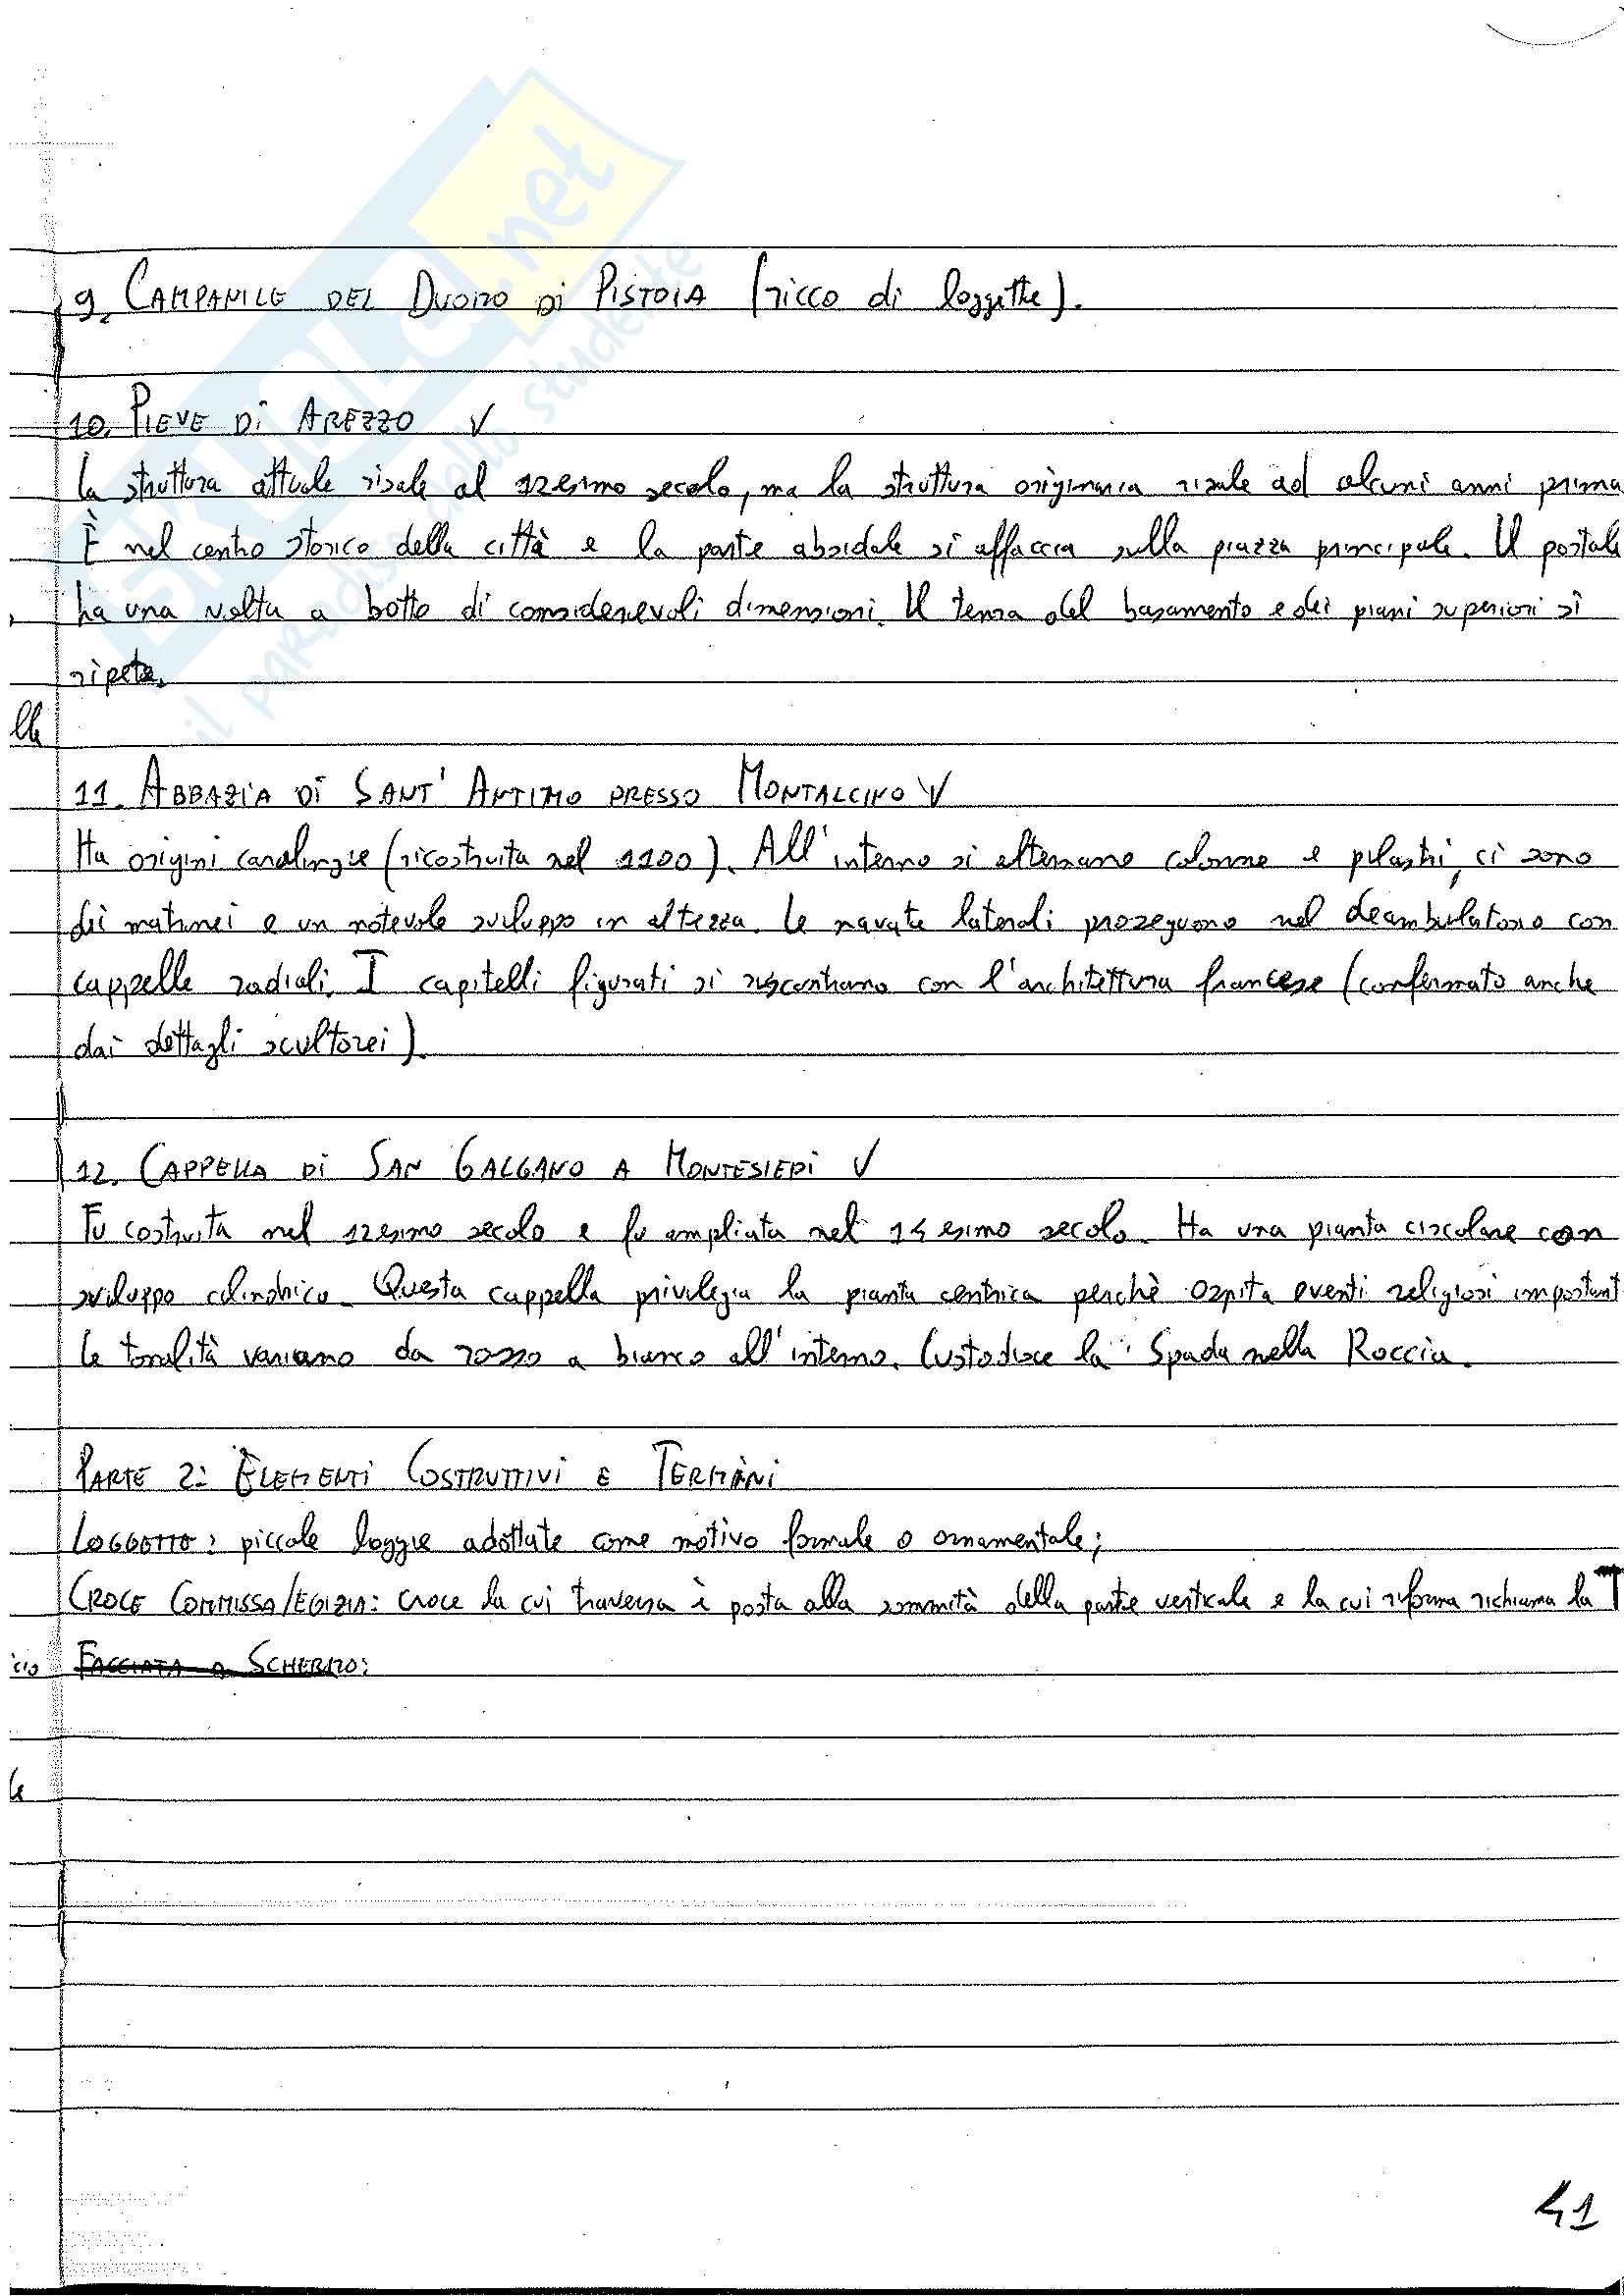 SKUOLA.net
il paradiso dello studente
9. CAMPANILE DEL DUOMO Di PISTOIA (ricco di loggette).
10. PIEVE Di AREZZO V
La struttura attuale risale al 12esimo secolo, ma la struttura originaria risale ad alcuni anni prima
È nel centro storico della città e la parte absidale si affaccia sulla piazza principale. Il portale
ha una volta a botte di considerevoli dimensioni. Il tema del basamento e dei piani superiori si
ripete.
lle
11. ABBAZIA Di SANT' ANTIMO PRESSO MONTALCINO V
Ha origini carolingie (ricostruita nel 1100). All'interno si alternano colonne e pilastri, ci sono
dei matronei e un notevole sviluppo in altezza. Le navate laterali proseguono nel deambulatorio con
cappelle radiali. I capitelli figurati si riscontrano con l'architettura francese (confermato anche
dai dettagli scultorei).
12. CAPPELLA Di SAN GALGANO A MONTESIEPI V
Fu costruita nel 12esimo secolo e fu ampliata nel 14esimo secolo. Ha una pianta circolare con
sviluppo cilindrico. Questa cappella privilegia la pianta centrica perchè ospita eventi religiosi important
Le tonalità variano da rosso a bianco all'interno. Custodisce la Spada nella Roccia.
PARTE 2: ELEMENTI COSTRUTTIVI E TERMINI
LOGGETTE: piccole loggie adottate come motivo formale o ornamentale;
CROCE COMMISSA/EGIZIA: croce la cui traversa è posta alla sommità della parte verticale e la cui forma richiama la T
cio FACCIATA A SCHERMO:
le
41